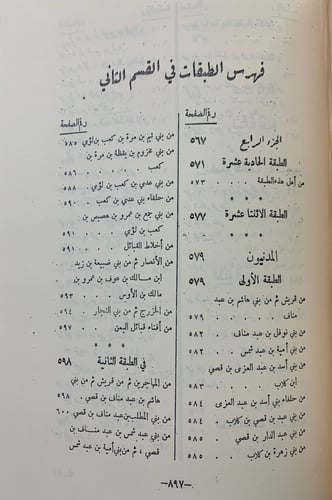 فهرس الطبقات في القسم الثاني
رقم الصفحة
الجزء الرابع ٥٦٧
الطبقة الحادية عشرة ٥٧١
من أهل هذه الطبقة . . . . ٥٧٣
الطبقة الاثنتا عشرة ٥٧٧
المدنيون ٥٧٩
الطبقة الأولى ٥٧٩
من قريش ثم من بني هاشم بن عبد
مناف . . . . ٥٧٩
من بني نوفل بن عبد مناف . ٥٨٢
من بني أمية بن عبد شمس . . ٥٨٢
من بني أسد بن عبد العزى بن قصي
ابن كلاب . . . . ٥٨٣
من حلفاء بني أسد بن عبد العزى ٥٨٤
من بني عبد بن قصي بن كلاب . ٥٨٤
من بني عبد الدار بن قصي . ٥٨٥
من بني زهرة بن كلاب . . ٥٨٥
رقم الصفحة
من بني تيم بن مرة بن كعب بن لؤي ٥٨٥
من بني مخزوم بن يقظة بن مرة بن
كعب . . . . ٥٨٦
من بني عدي بن كعب بن لؤي . ٥٨٨
من حلفاء بني عدي بن كعب . ٥٩٠
من بني جمح بن عمرو بن هصيص بن
كعب بن لؤي . . . ٥٩١
من أخلاط القبائل . . . ٥٩١
من الأنصار ثم من بني ضبيعة بن زيد
ابن مالك بن عوف بن عمرو بن
مالك بن الأوس . . . ٥٩٣
من الخزرج ثم من بني النجار . ٥٩٤
من أفناء قبائل اليمن . . ٥٩٧
في الطبقة الثانية ٥٩٨
من المهاجرين ثم من قريش ثم من بني
هاشم بن عبد مناف بن قصي . ٥٩٨
من بني المطلب بن عبد مناف بن قصي ٦٠٠
من بني عبد شمس بن عبد مناف بن
قصي ، ثم من بني أمية بن عبد شمس
-٨٩٧-